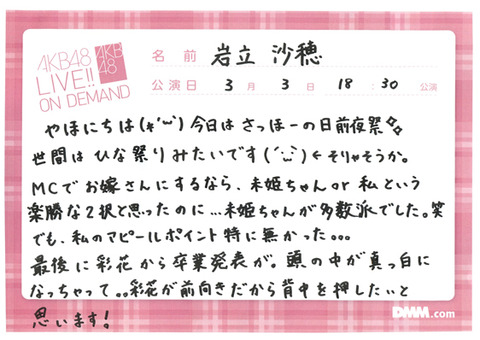 AKB48
LIVE!!
ON DEMAND
AKB
48
名前 岩立 沙穂
公演日 3月3日 18:30 公演
やほにちは(*´ω`)今日はさっほーの日前夜祭✧
世間はひな祭りみたいです(´ω`)←そりゃそうか。
MCでお嫁さんにするなら、未姫ちゃんor私という
楽勝な2択と思ったのに…未姫ちゃんが多数派でした。笑
でも、私のアピールポイント特に無かった...
最後に彩花から卒業発表が。頭の中が真っ白に
なっちゃって。。彩花が前向きだから背中を押したいと
思います!
DMM.com